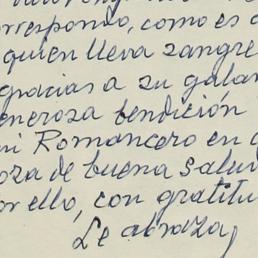 orrespondo, como es d
quien lleva zangre
gracias a su galan
eneroza bendición
mi Romancero en
oza de buena salu
or ello, con gratitu
Le abraza,